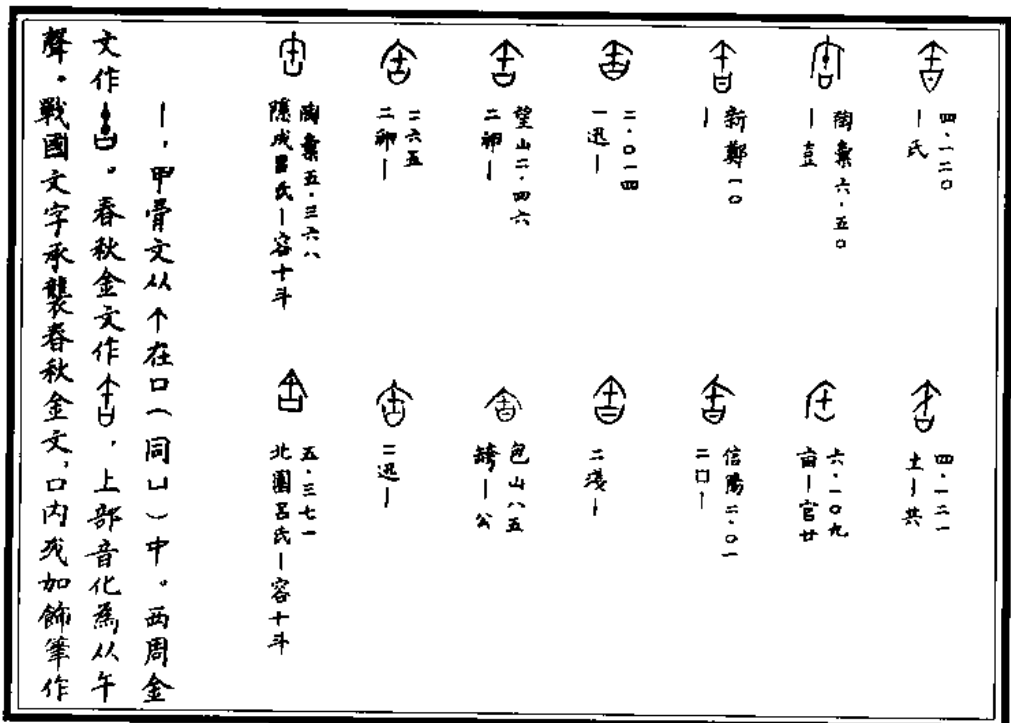 四·一二〇
｜氏
陶彙六·五〇
｜
新鄭一〇
｜
二·〇一四
一迅｜
望山二·四六
二｜
二六五
二｜
陶彙五·三六八
隱成呂氏｜容十斗
四·一二一
土｜共
六·一〇九
亩｜官廿
信陽二·〇一
二囗｜
二淺｜
包山八五
｜公
二迅｜
五·三七一
北園呂氏｜容十斗
｜，甲骨文从个在口（同凵）中。西周金
文作。春秋金文作，上部音化為从午
聲。戰國文字承襲春秋金文，口內或加飾筆作